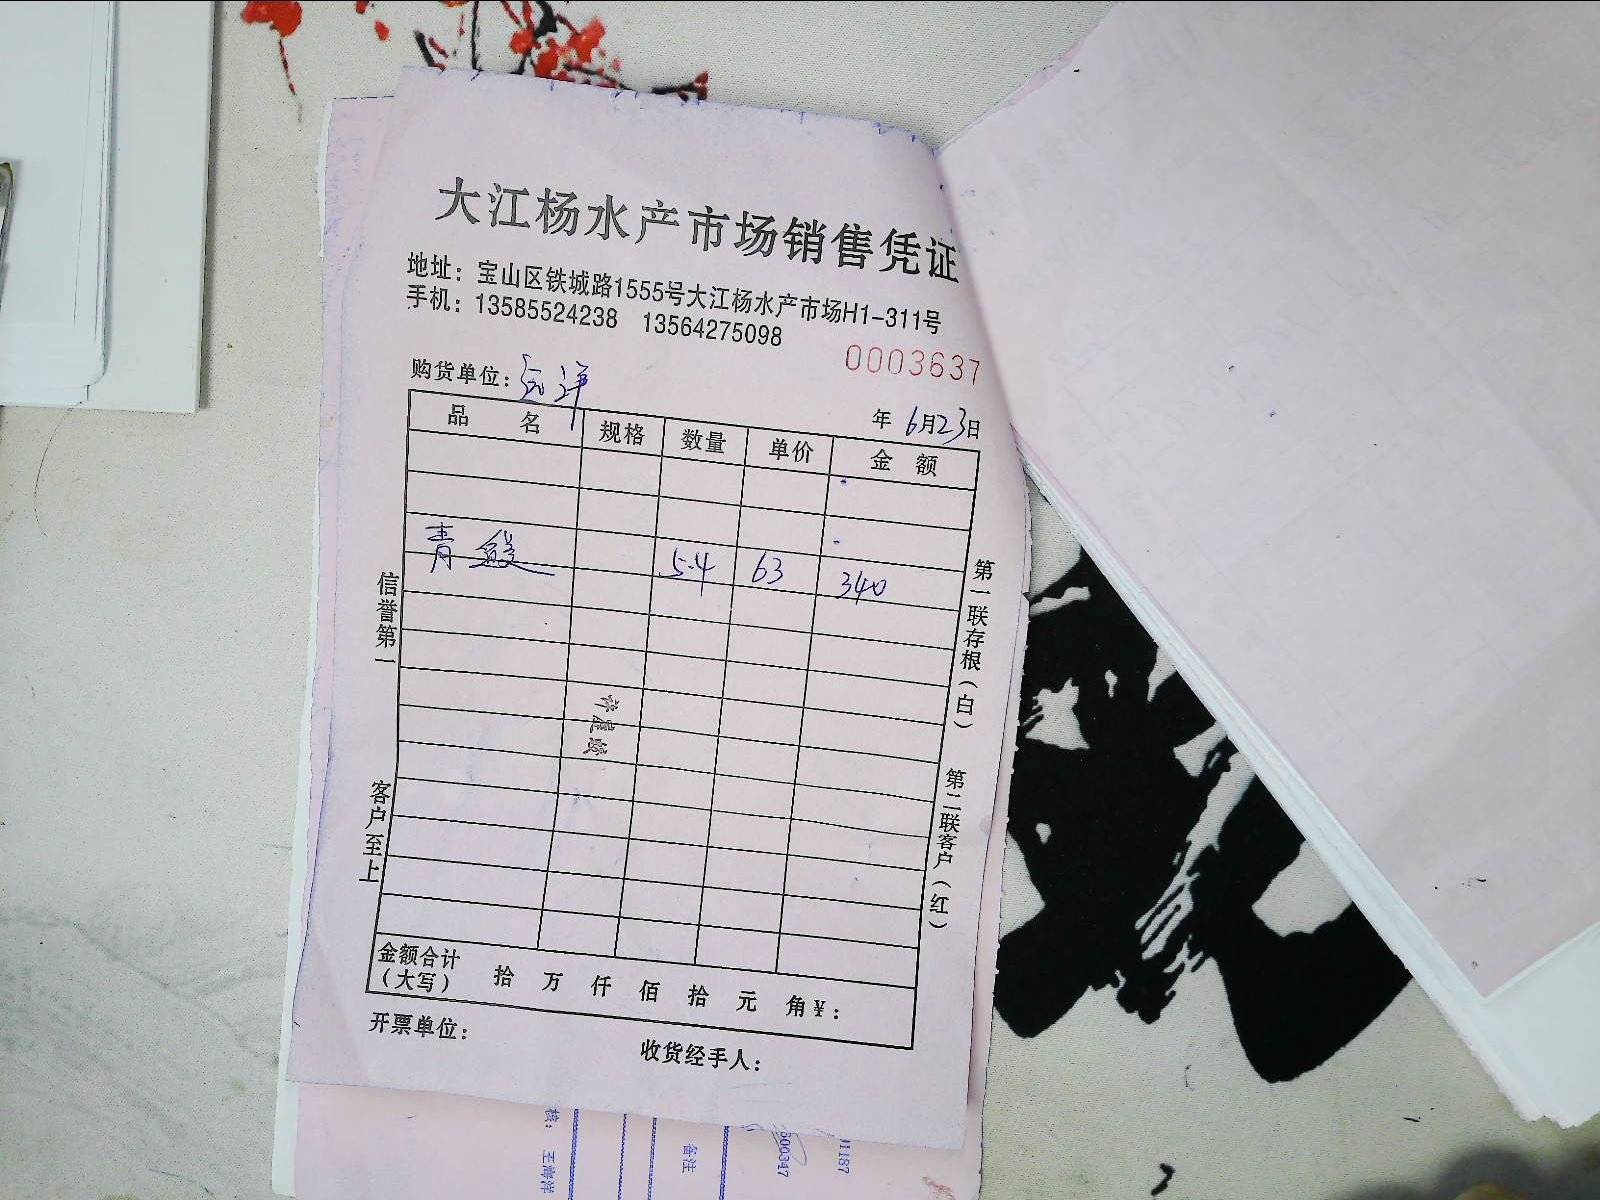 大江杨水产市场销售凭证
地址：宝山区铁城路1555号大江杨水产市场H1-311号
手机：13585524238 13564275098
0003637
购货单位：远洋
年 6月23日
品 名 规格 数量 单价 金 额
青 5.4 63 340
信誉第一 客户至上
第一联存根（白） 第二联客户（红）
金额合计
（大写） 拾 万 仟 佰 拾 元 角 ¥：
开票单位：
收货经手人：
备注